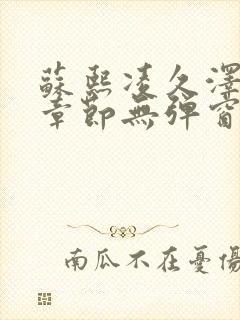 蘇熙凌久澤
章節無彈窗
南瓜不在憂傷